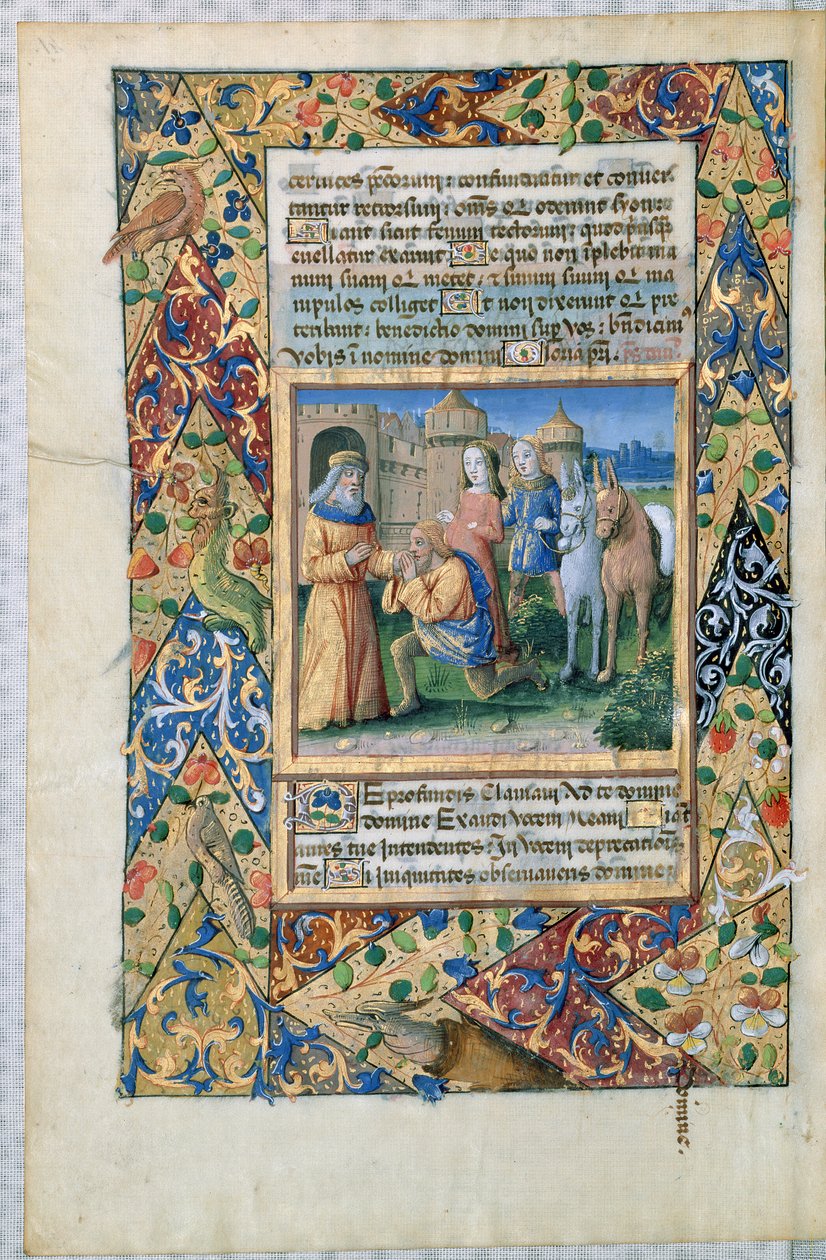 cervices peccorum: confundantur et conuer
tantur retrorsum: oms qui oderunt syon
iant sicut fenum tectorum: quod priusqr
euellatur exaruit De quo non iplebit ma
num suam qi metet: et sinum suum qi ma
nipulos colliget Et non dixerunt qi pre
teribant: benedictio domini sup vos: bndicim9
vobis i nomine domini Gloria pri. ps dauid.
De profundis Clamaui Ad te domine
domine Exaudi Vocem Meam Fiat
aures tue Intendentes: In Vocem deprecationis
mee Si Iniquitates obseruaueris domine:
Domine.